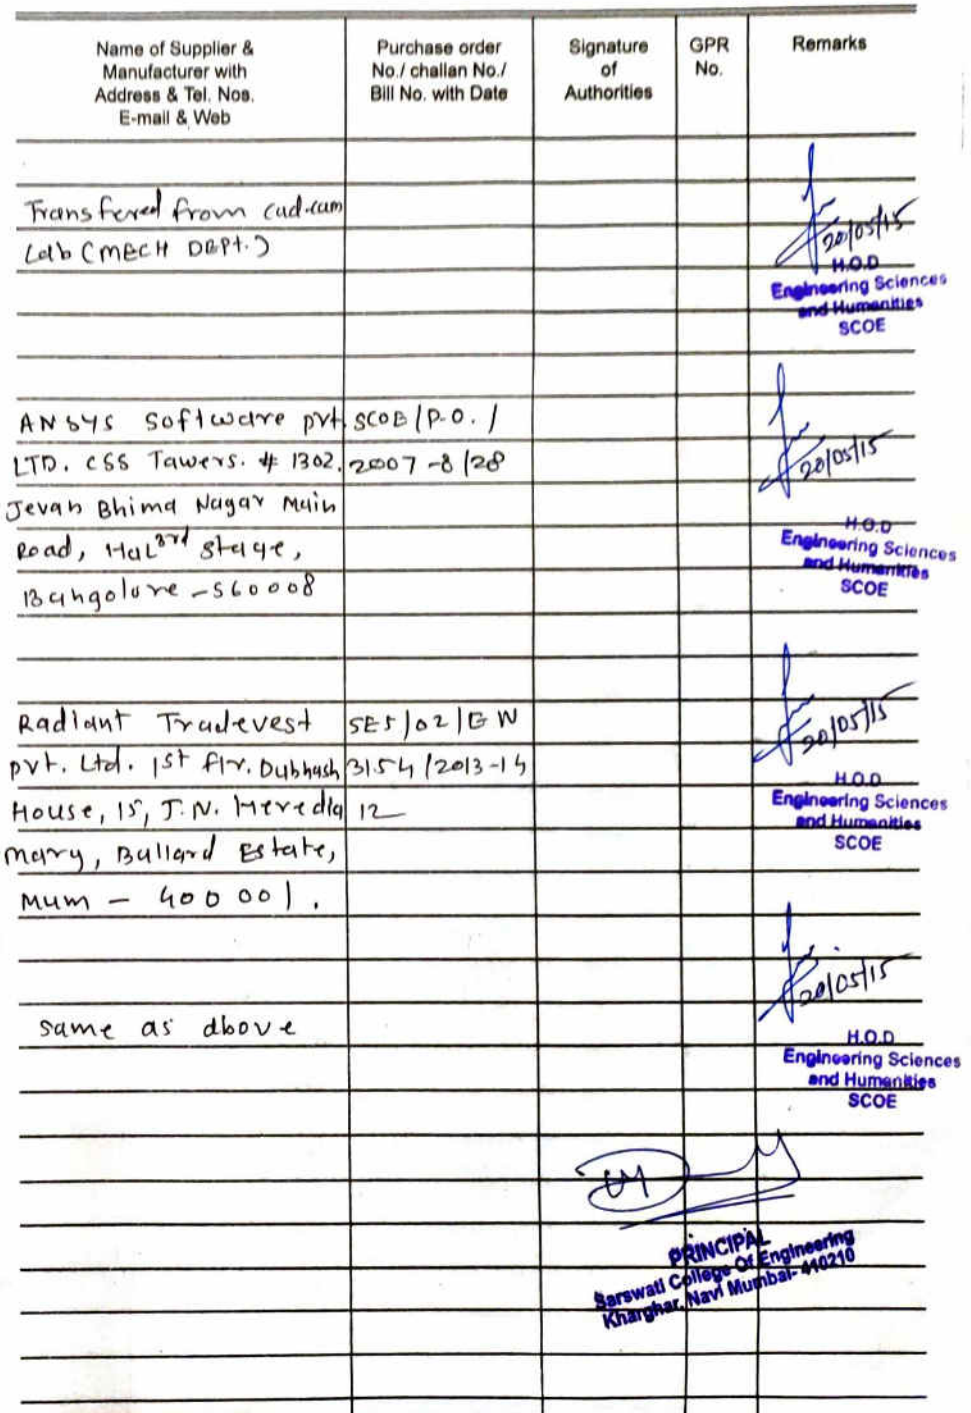 Name of Supplier &
Manufacturer with
Address & Tel. Nos.
E-mail & Web
Purchase order
No./ challan No./
Bill No. with Date
Signature
of
Authorities
GPR
No.
Remarks
Transfered from cad-cam
Lab (MECH DEPt.)
20/05/15
H.O.D
Engineering Sciences
and Humanities
SCOE
ANSYS Software pvt. SCOE/P.O./
LTD. CSS Tawers. # 1302, 2007-8/28
Jevan Bhima Nagar Main
Road, Hal 3rd stage,
Bangolore - 560008
20/05/15
H.O.D
Engineering Sciences
and Humanities
SCOE
Radiant Tradevest SES/02/GW
pvt. Ltd. 1st flr. Dubhash 3154/2013-14
House, 15, J.N. Heredia 12
Mary, Ballard Estate,
Mum - 400001.
20/05/15
H.O.D
Engineering Sciences
and Humanities
SCOE
same as above
20/05/15
H.O.D
Engineering Sciences
and Humanities
SCOE
PRINCIPAL
Sarswati College Of Engineering
Kharghar, Navi Mumbai- 410210